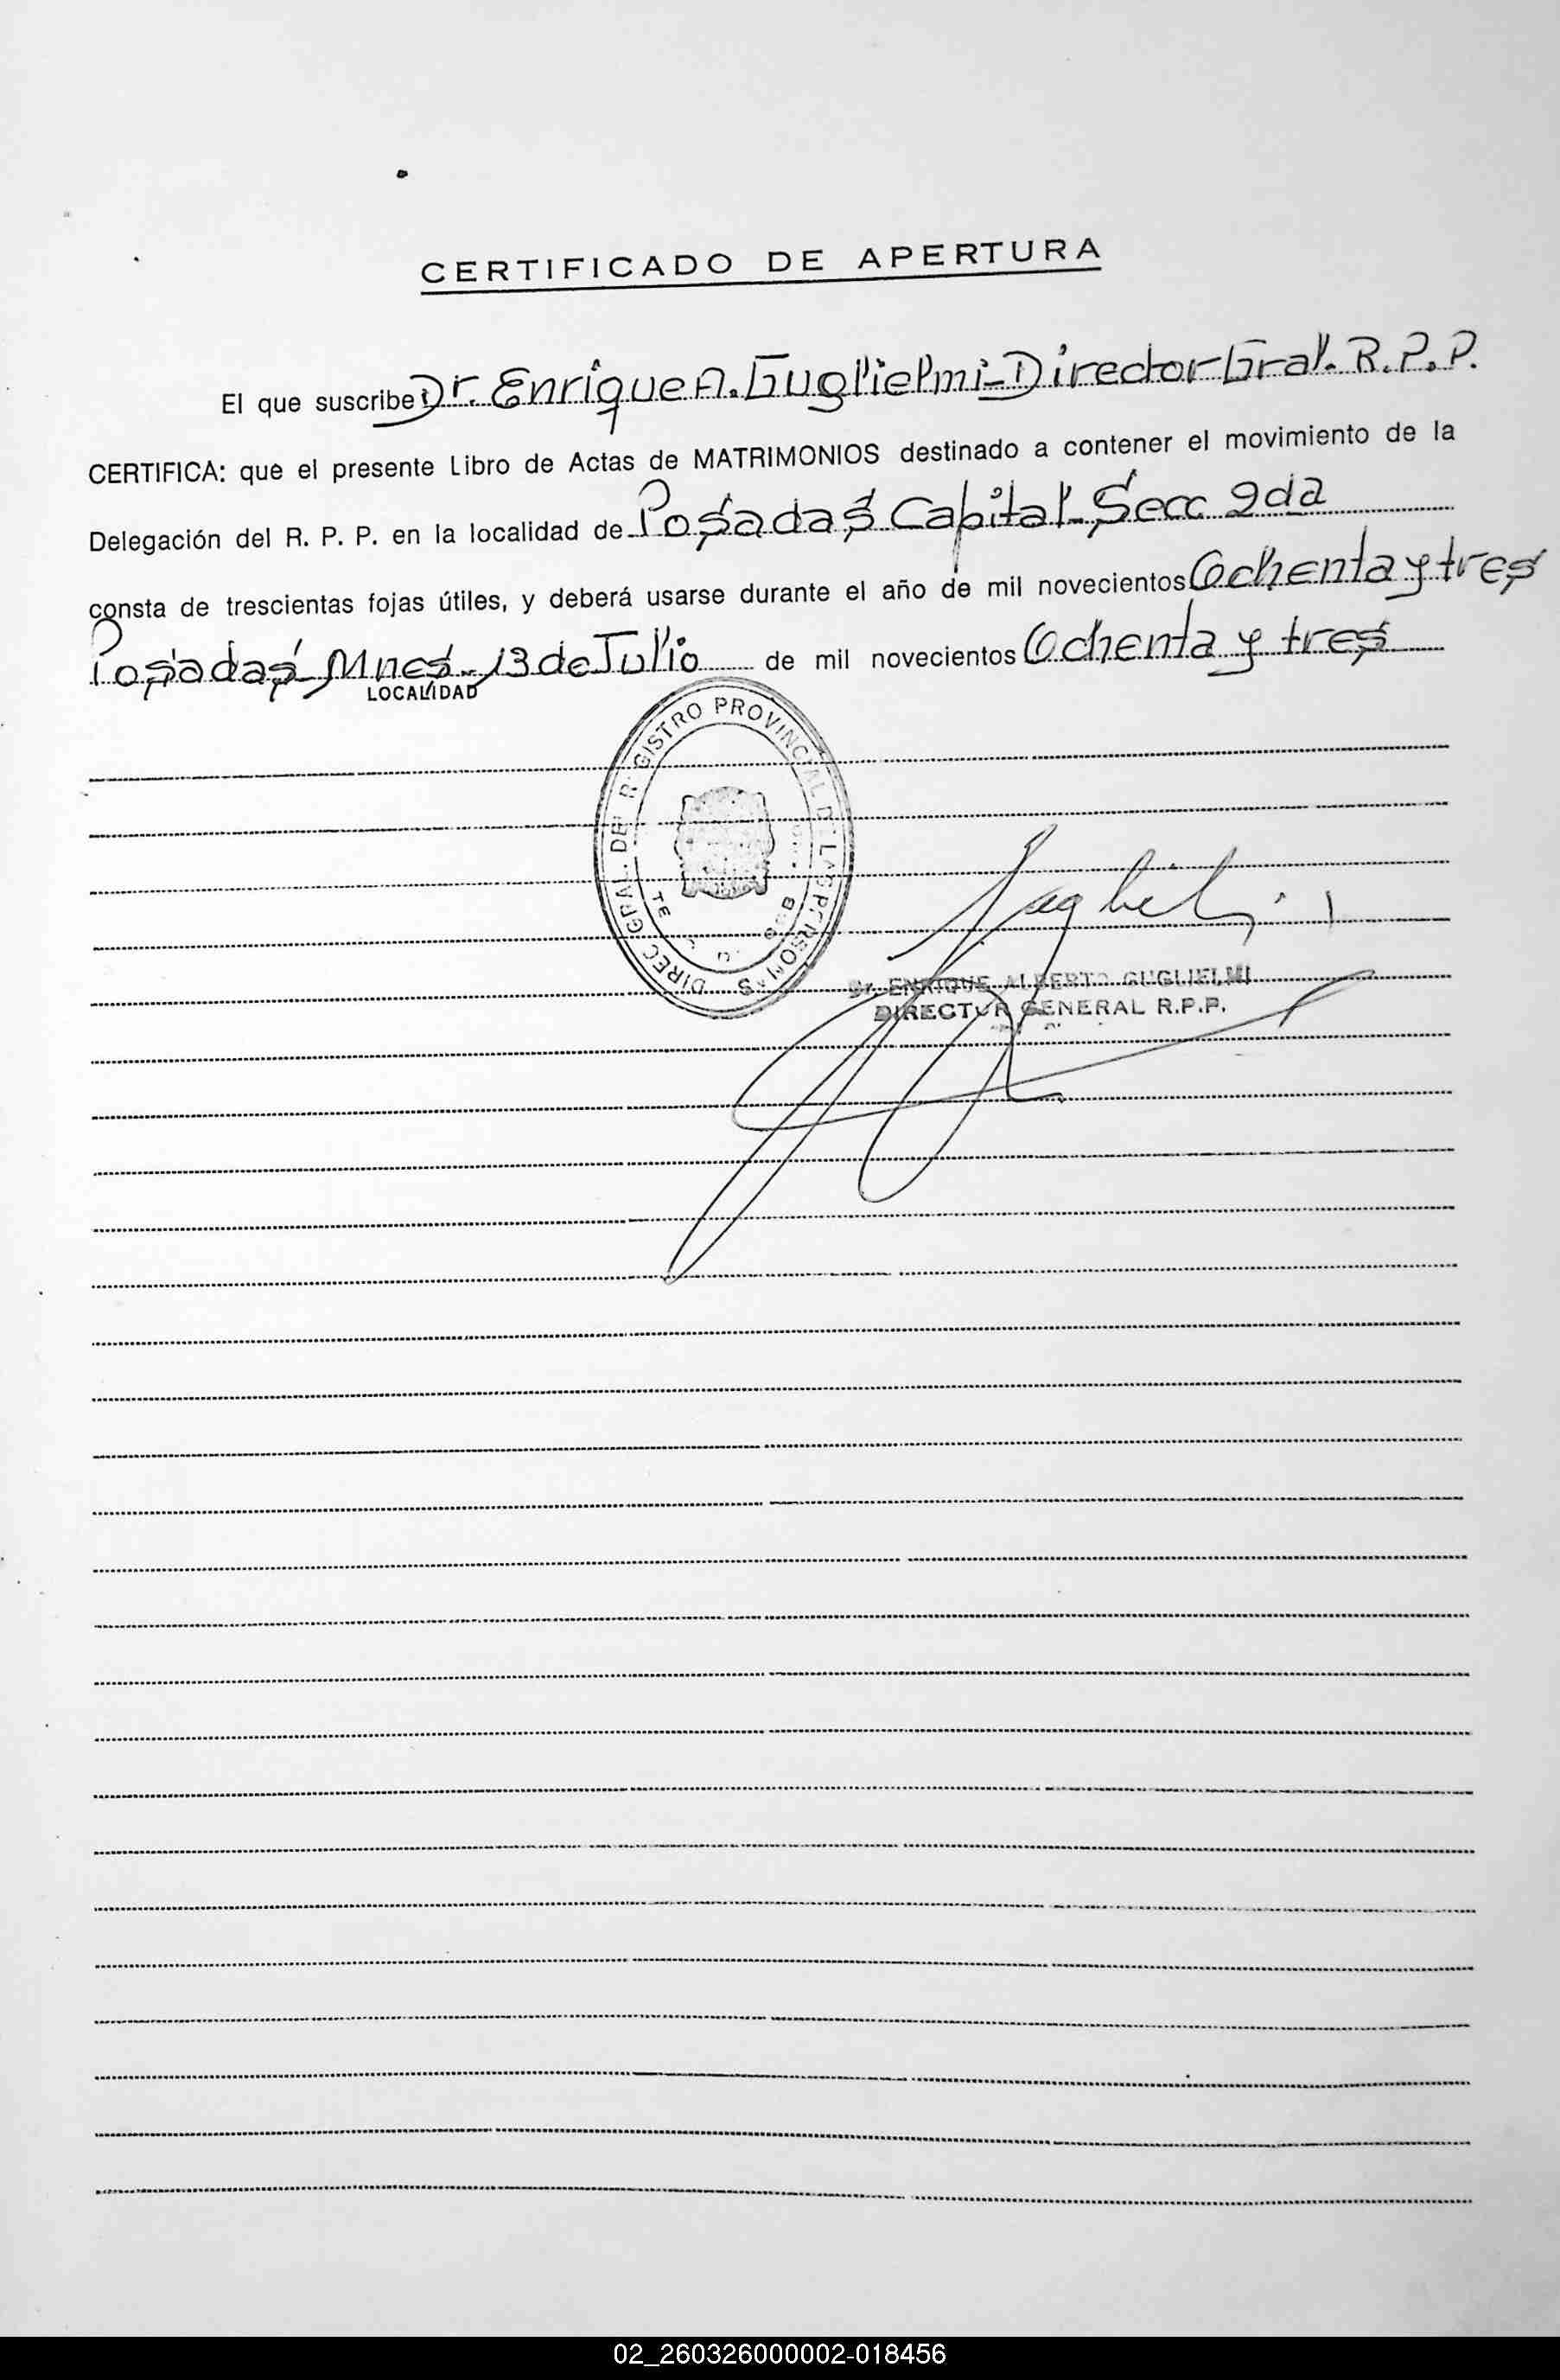 CERTIFICADO DE APERTURA
El que suscribe Dr. Enrique A. Guglielmi - Director Gral. R.P.P.
CERTIFICA: que el presente Libro de Actas de MATRIMONIOS destinado a contener el movimiento de la
Delegación del R. P. P. en la localidad de Posadas Capital - Secc 2da
consta de trescientas fojas útiles, y deberá usarse durante el año de mil novecientos Ochenta y tres
Posadas Mnes - 13 de Julio de mil novecientos Ochenta y tres
LOCALIDAD
DIREC GRAL. DEL REGISTRO PROVINCIAL DE LAS PERSONAS
Dr. ENRIQUE ALBERTO GUGLIELMI
DIRECTOR GENERAL R.P.P.
02_260326000002-018456